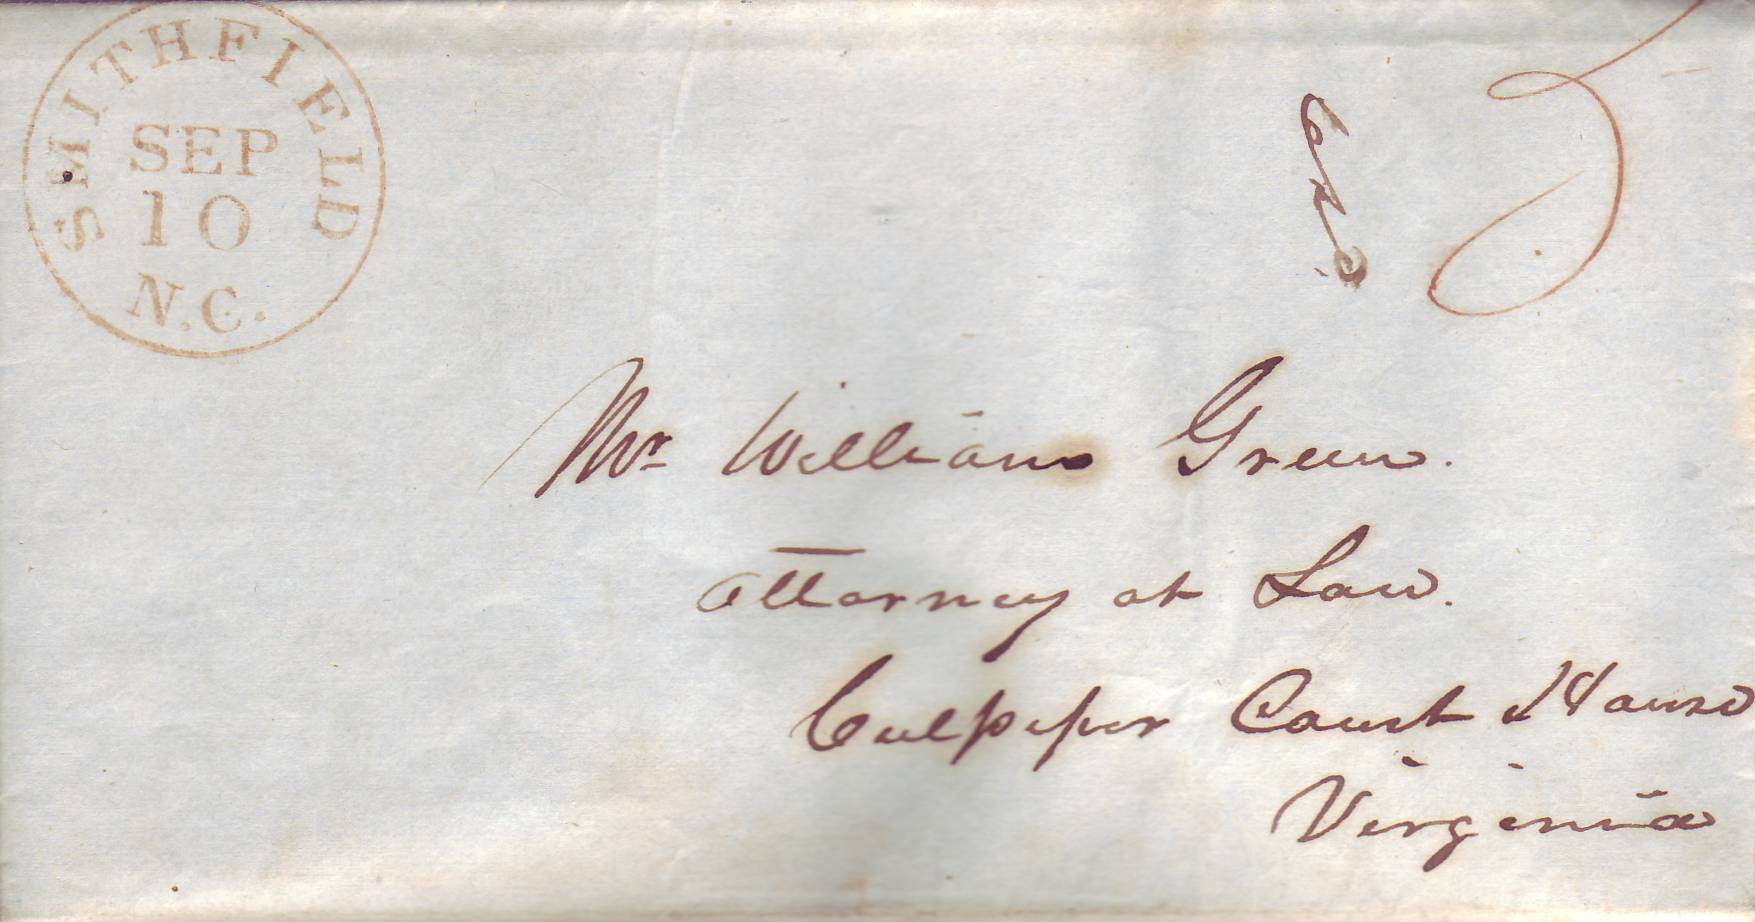 SMITHFIELD
SEP
10
N.C.
5
Mr William Green.
Attorney at Law.
Culpeper Court House
Virginia